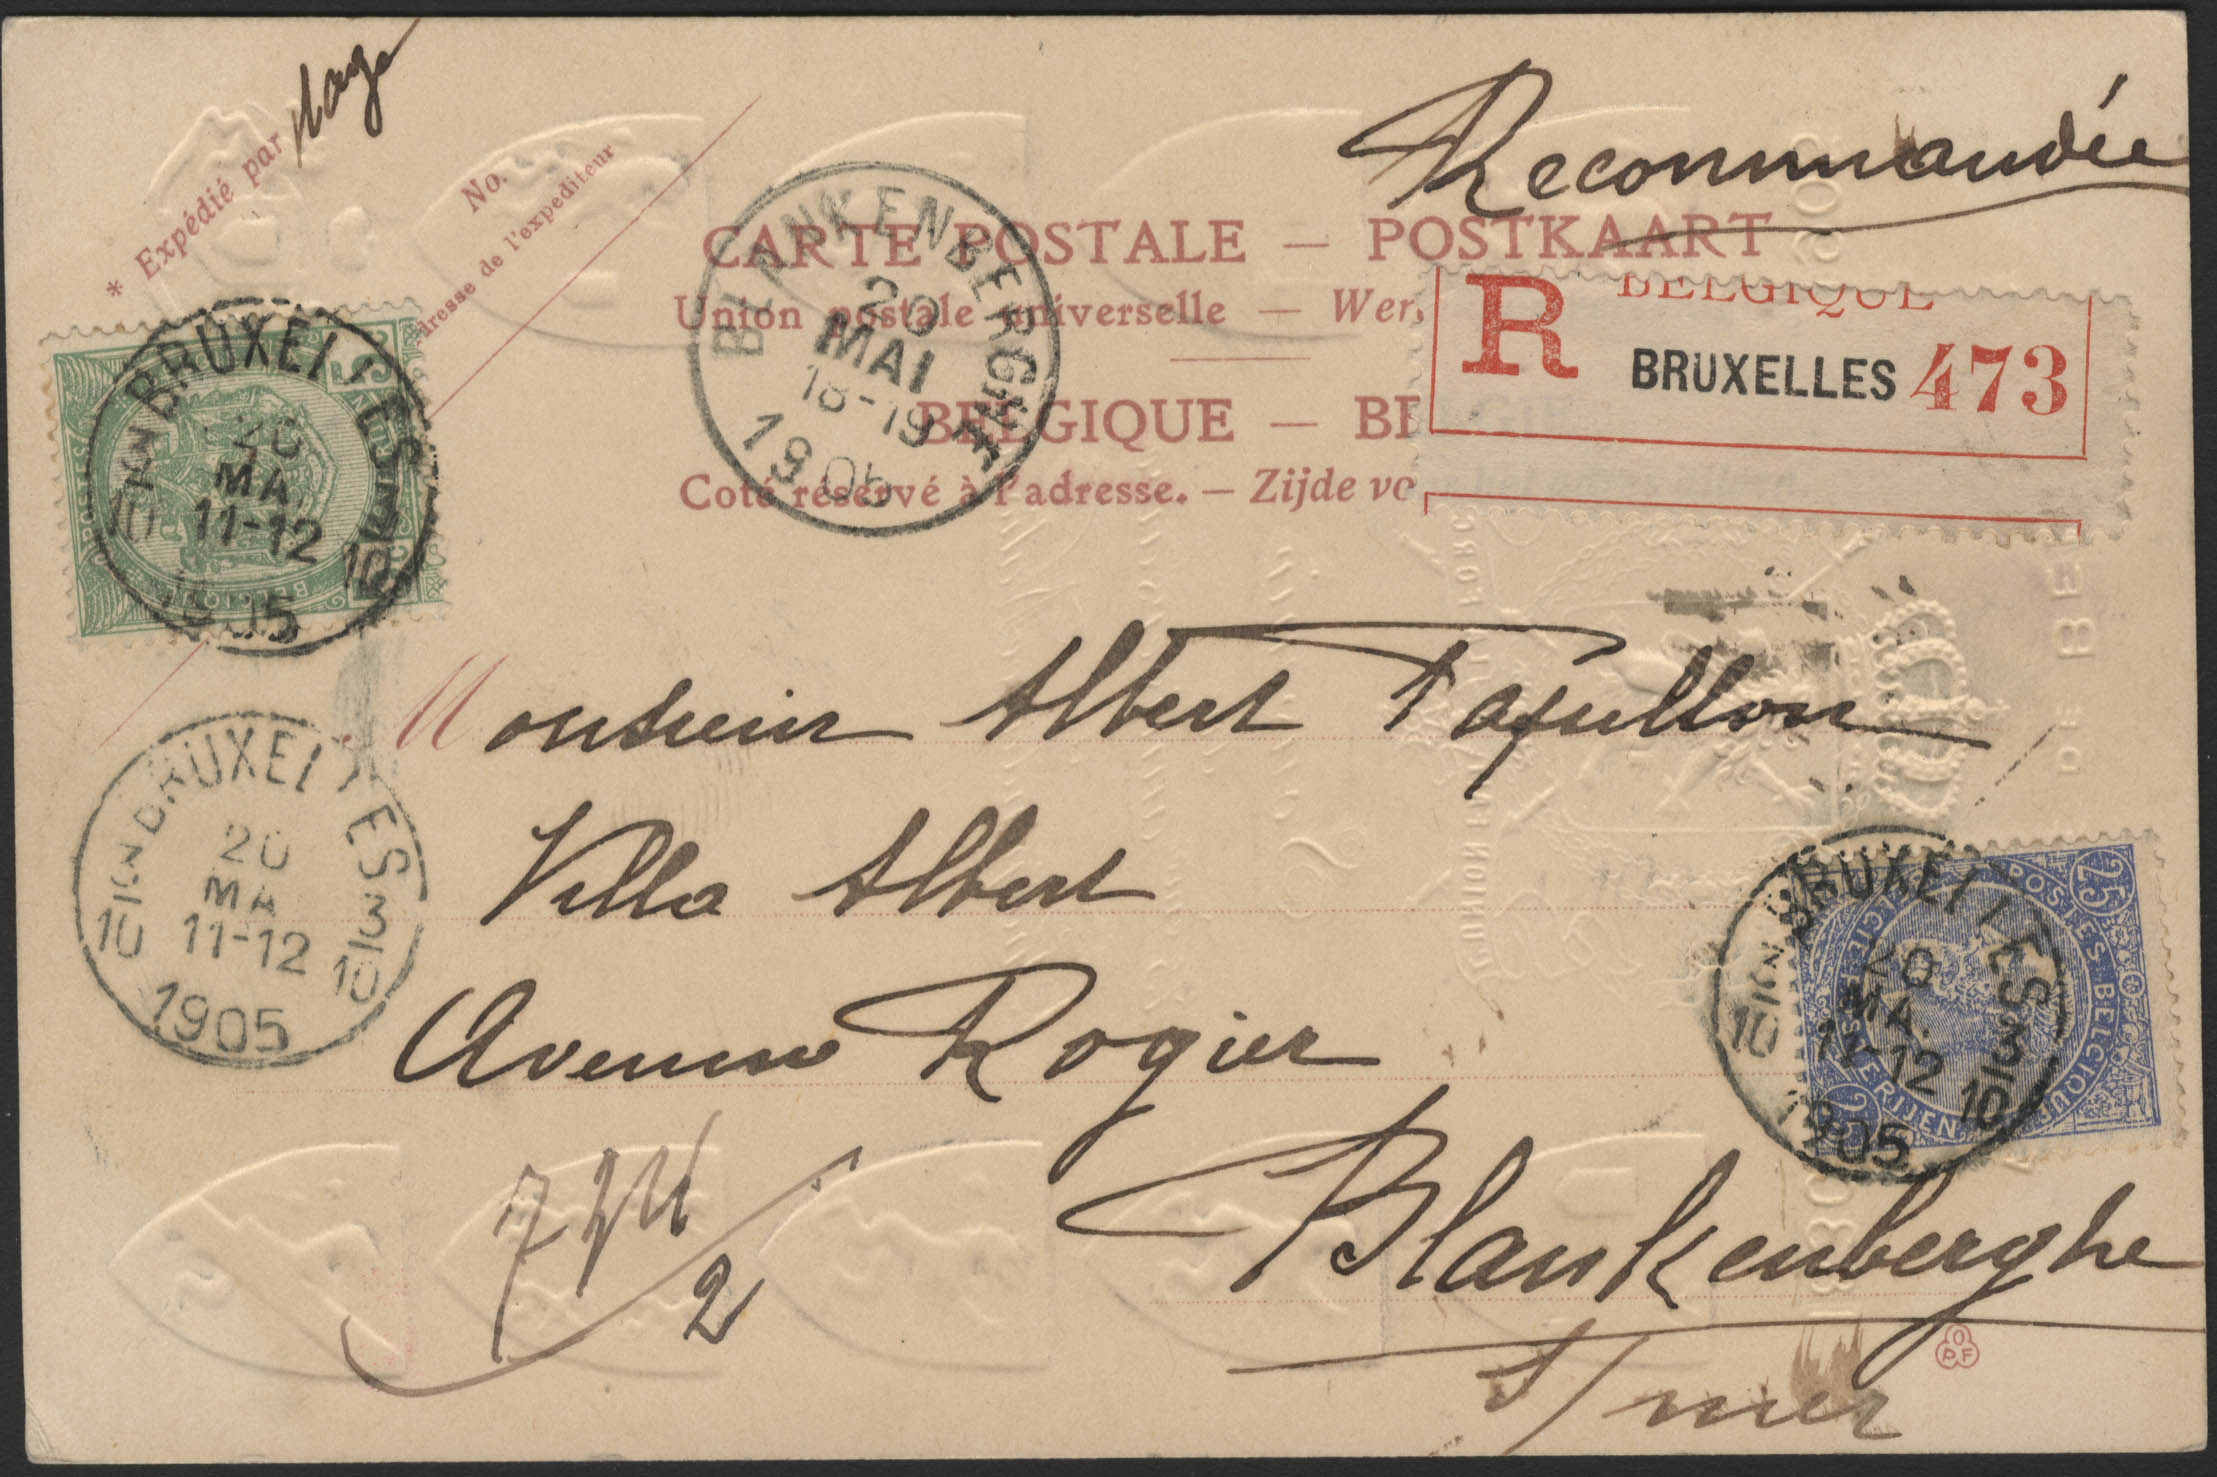 Recommandée
* Expédié par
No.
adresse de l'expediteur
CARTE POSTALE — POSTKAART
Union postale universelle — Wer
BELGIQUE — BE
Coté réservé à l'adresse. — Zijde vo
R BELGIQUE
BRUXELLES 473
BLANKENBERGHE
20
MAI
18-19
1905
BRUXELLES
20
MA
11-12
10 10
1905
Monsieur Albert Papillon
Villa Albert
Avenue Rogier
Blankenberghe
s/mer
BRUXELLES
20
MA
11-12
10 3 10
1905
25 POSTES BELGIQUE
BRUXELLES
20
MA.
11-12
10 3 10
1905
2
OPF